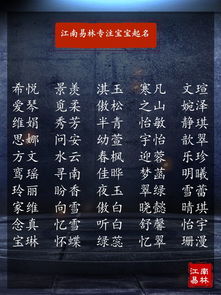 江南易林专注宝宝起名
希悦 景美 淇玉 寒凡 文瑄
爱琴 觅柔 傲松 之山 婉泽
维娟 秀芳 半青 怡敏 妮娜
思娜 问安 幼萱 宇怡 静韵
方文 水云 春枫 迎蓉 歆翠
鸾瑶 寻南 佳晔 梦菡 乐珍
玲丽 盼香 夜玉 翠绿 明曦
家维 向雪 傲白 晓懿 雪蕾
念真 忆雪 听白 舒馨 晴琪
宝琳 怀蝶 绿蕊 忆翠 怡宇
江南
易林